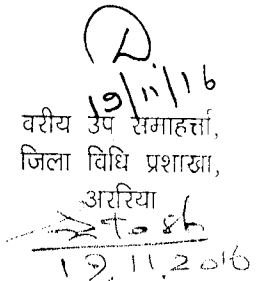 19/11/16
वरीय उप समाहर्त्ता,
जिला विधि प्रशाखा,
अररिया
19.11.2016